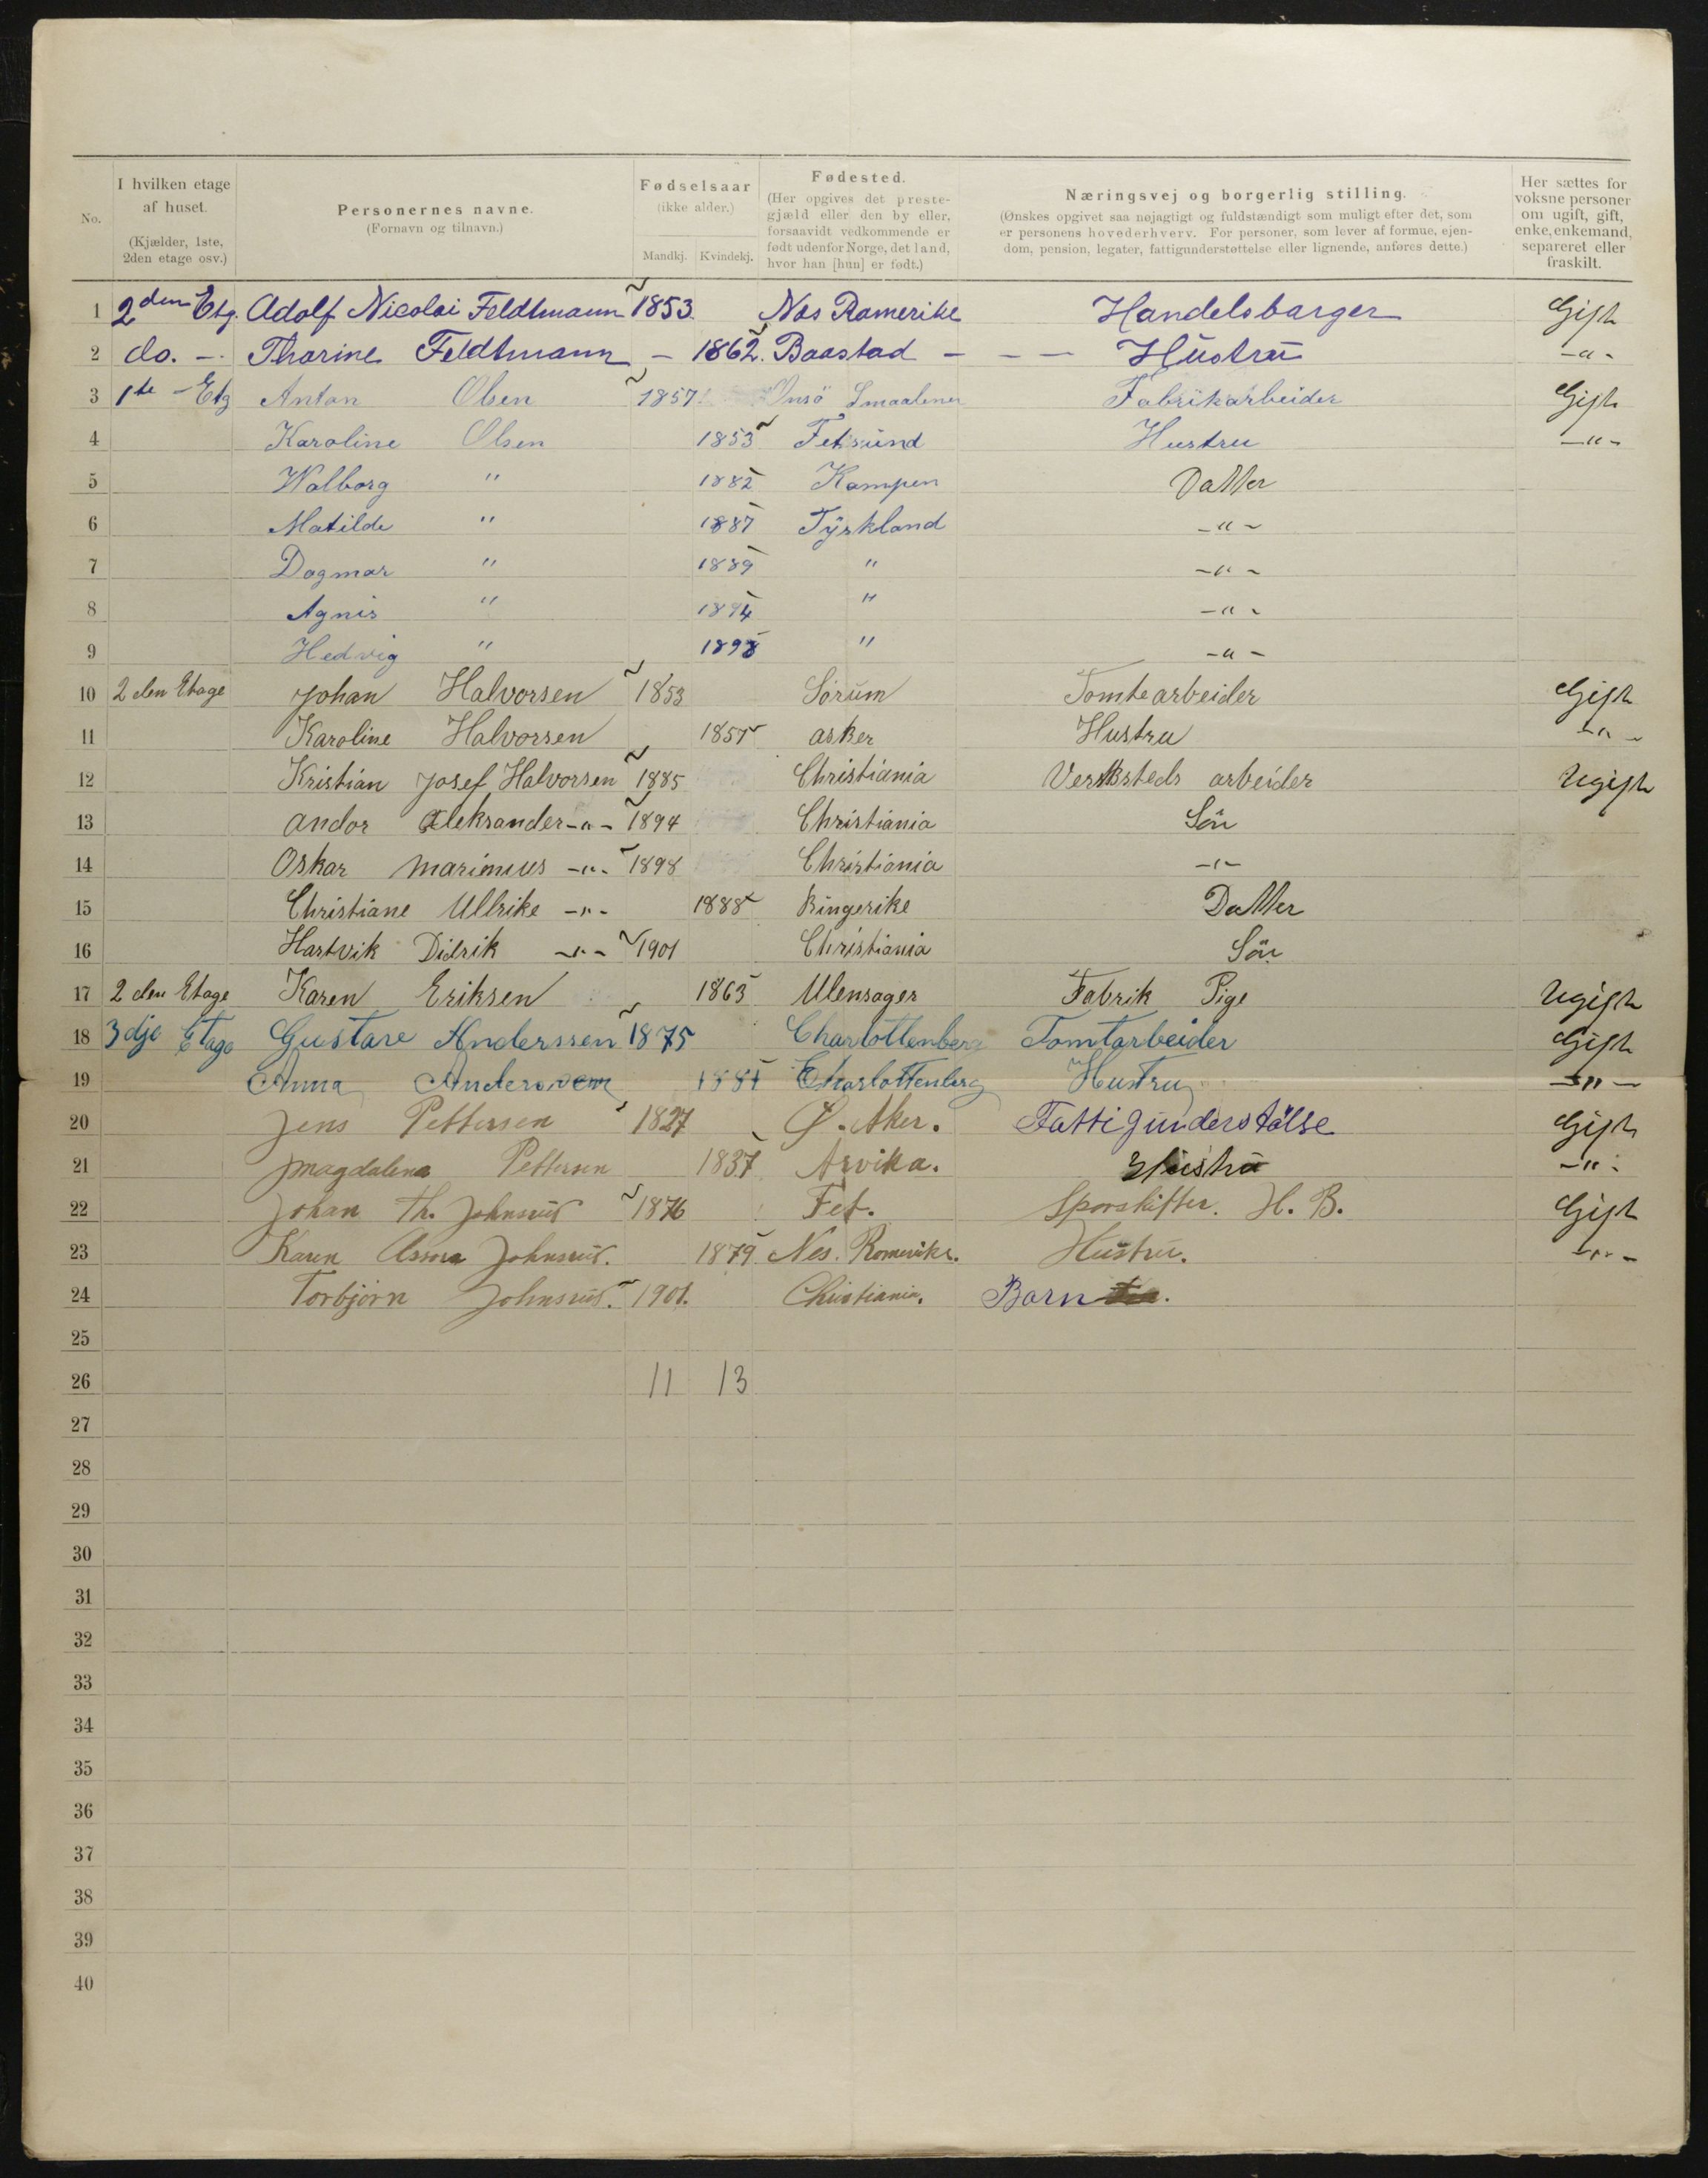 No. | I hvilken etage af huset. (Kjælder, 1ste, 2den etage osv.) | Personernes navne. (Fornavn og tilnavn.) | Fødselsaar (ikke alder.) Mandkj. Kvindekj. | Fødested. (Her opgives det prestegjæld eller den by eller, forsaavidt vedkommende er født udenfor Norge, det land, hvor han [hun] er født.) | Næringsvej og borgerlig stilling. (Ønskes opgivet saa nøjagtigt og fuldstændigt som muligt efter det, som er personens hovederhverv. For personer, som lever af formue, ejendom, pension, legater, fattigunderstøttelse eller lignende, anføres dette.) | Her sættes for voksne personer om ugift, gift, enke, enkemand, separeret eller fraskilt.
1 2den Etg. Adolf Nicolai Feldtmann 1853 Nas Ramerike Handelsbarger Gift
2 do. - Tharine Feldtmann - 1862. Baastad - - - Hustru -"-
3 1te - Etg Anton Olsen 1857 Onsö Smaalenen Fabrikarbeider Gift
4 Karoline Olsen 1853 Fetsund Hustru -"-
5 Walborg " 1882 Kampen Datter
6 Matilde " 1887 Tyskland -"-
7 Dagmar " 1889 " -"-
8 Agnis " 1894 " -"-
9 Hedvig " 1898 " -"-
10 2den Etage Johan Halvorsen 1853 Sorum Tomtearbeider Gift
11 Karoline Halvorsen 1857 asker Hustru -"-
12 Kristian Josef Halvorsen 1885 Christiania Verksteds arbeider Ugift
13 Andor Aleksander -"- 1894 Christiania Sön
14 Oskar Marinius -"- 1898 Christiania -"-
15 Christiane Ullrike -"- 1888 Ringerike Datter
16 Hartvik Didrik -"- 1901 Christiania Sön
17 2den Etage Karen Eriksen 1863 Ulensager Fabrik Pige Ugift
18 3dje Etage Gustare Anderssen 1875 Charlottenberg Tomtarbeider Gift
19 Anna Anderssen 1881 Charlottenberg Hustru -"-
20 Jens Pettersen 1827 Ø. Aker. Fattigunderstølse Gift
21 Magdalena Pettersen 1837 Arvika. Hustru -"-
22 Johan Th. Johnsrud 1876 Fet. Sporskifter. H. B. Gift
23 Karen Johnsrud. 1879 Nes. Romerike. Hustru. -"-
24 Torbjørn Johnsrud. 1901. Christiania. Barn
25
26 11 13
27
28
29
30
31
32
33
34
35
36
37
38
39
40